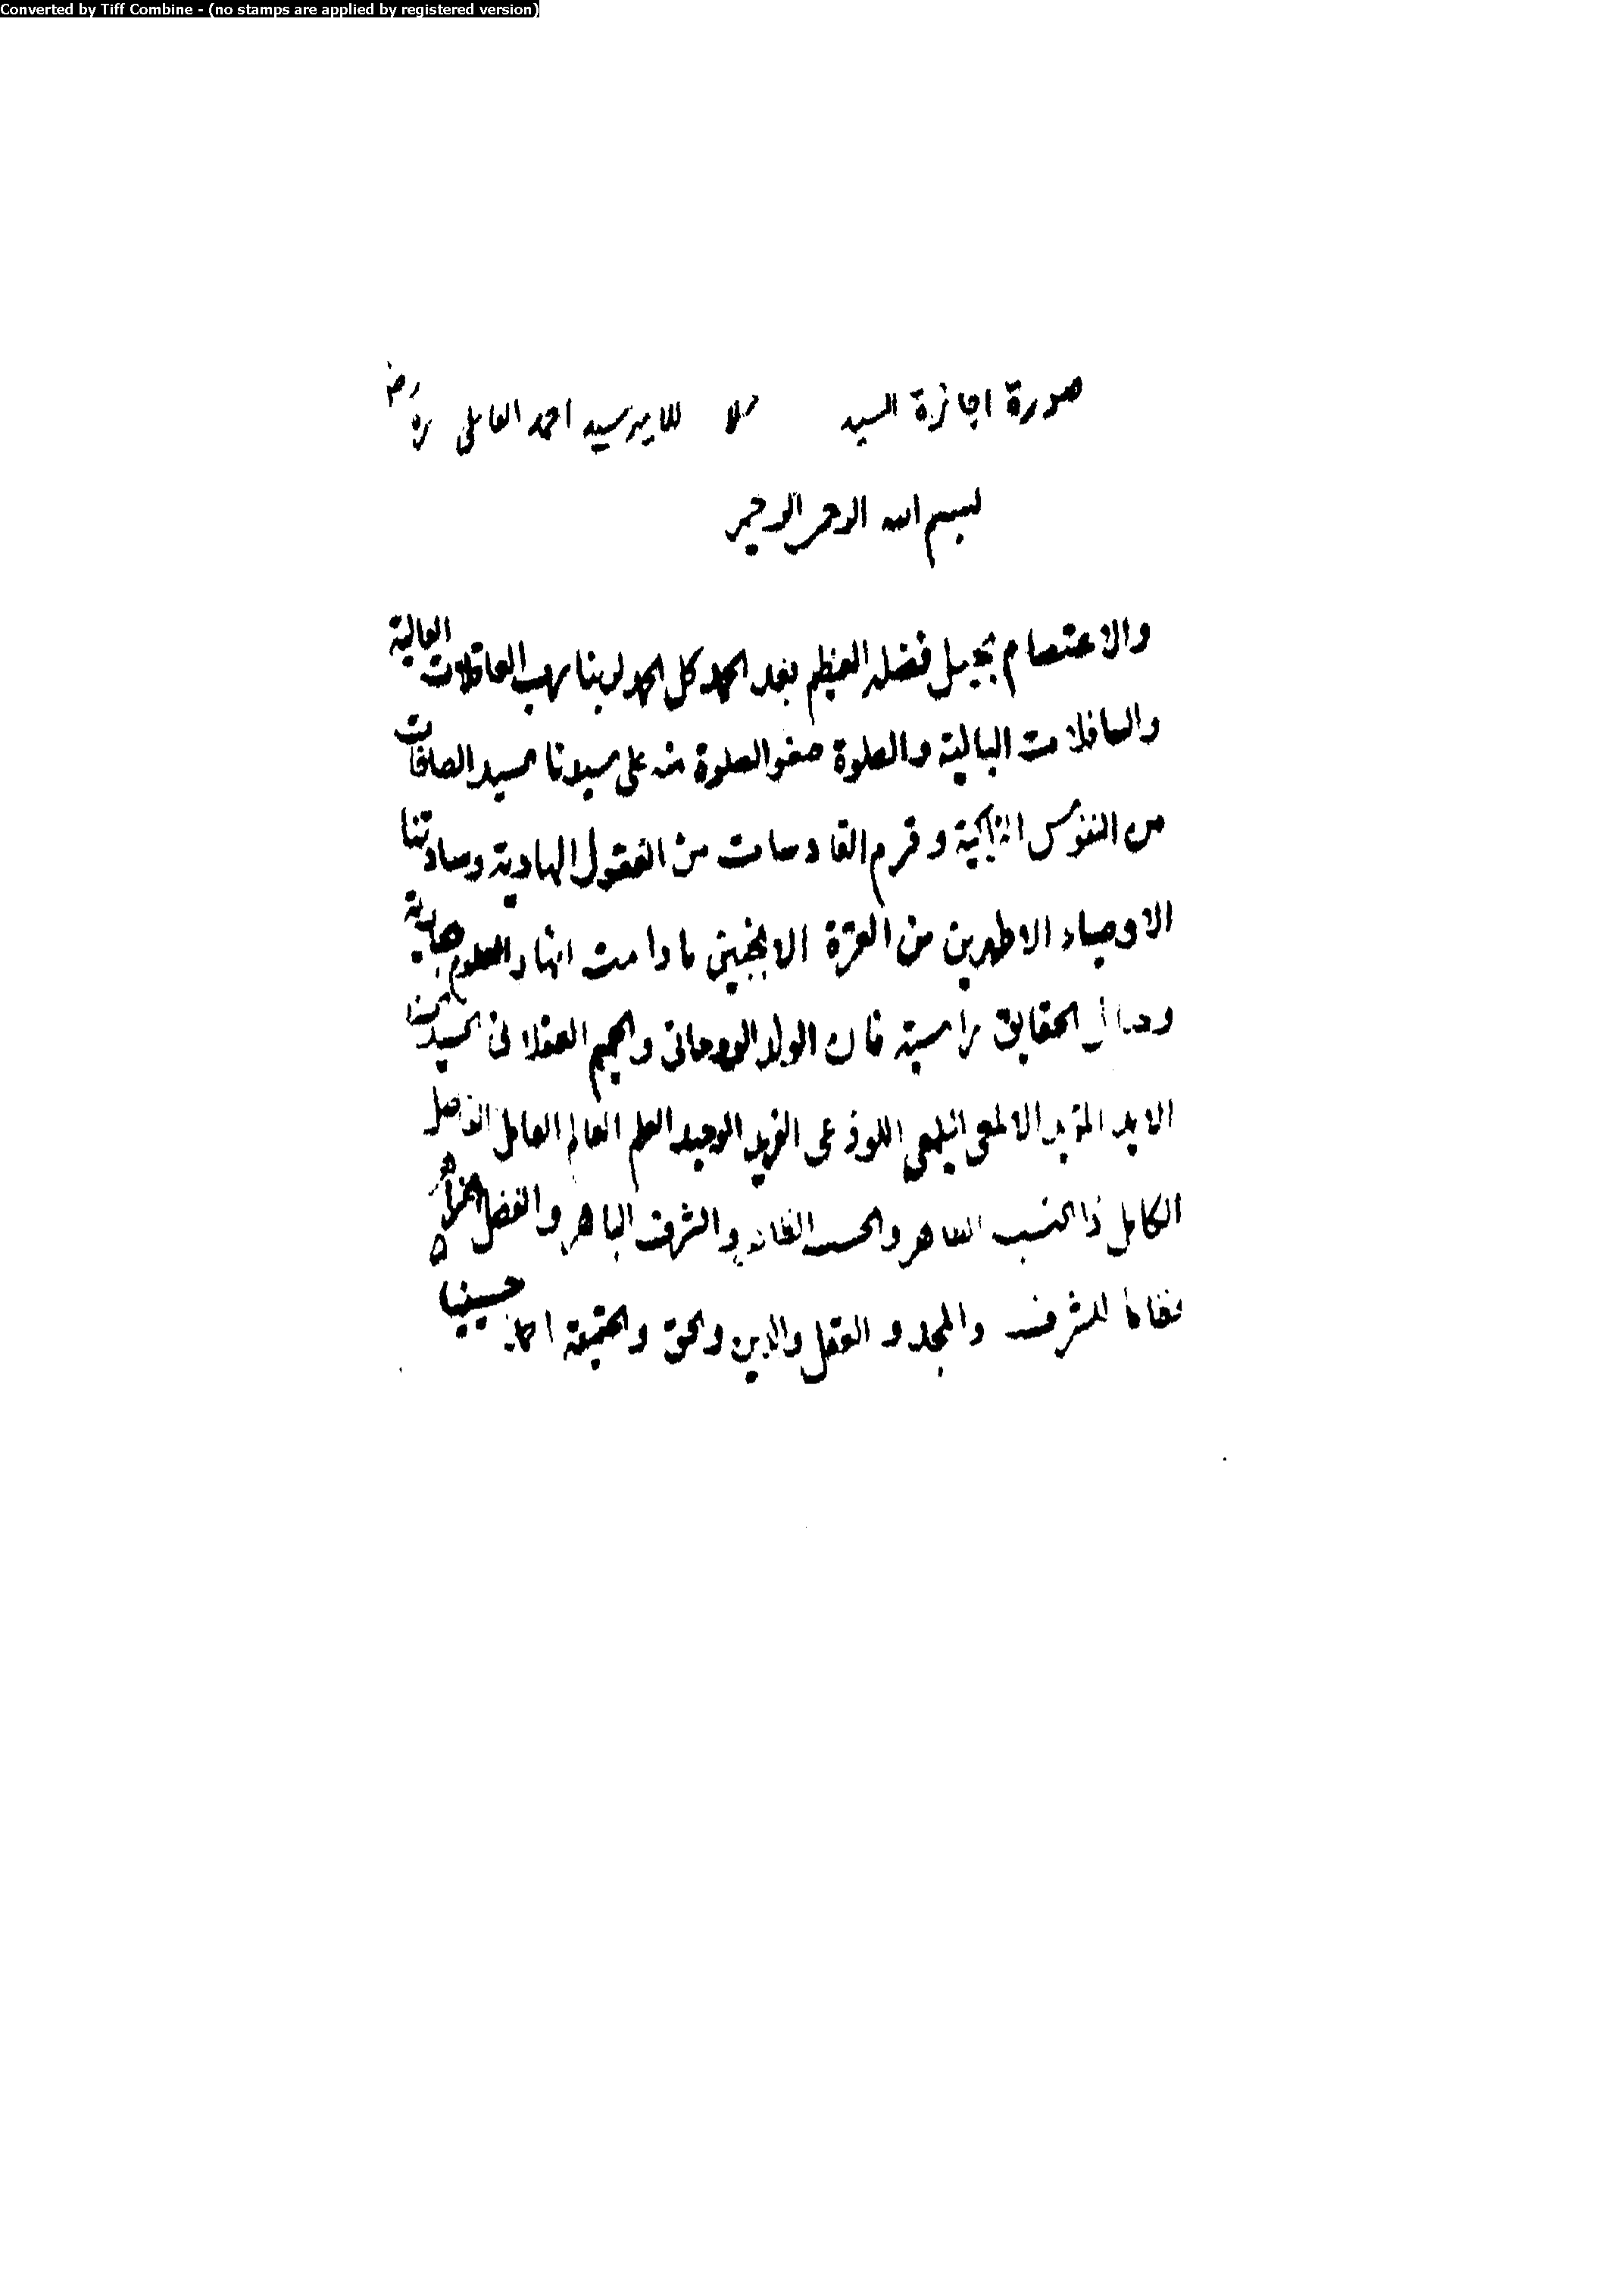 Converted by Tiff Combine - (no stamps are applied by registered version)
صورة اجازة السيد للامير سيد احمد العاملى ره
بسم الله الرحمن الرحيم
والاعتصام بجميل فضله العظيم بعد الحمد كل الحمد لربنا رب العاقلات العالية
والسافلات البالية والصلوة صفو الصلوة منه على سيدنا سيد الصافات
من النفوس الزاكية و قرم القادسات من العقول الهادية وسادتنا
الاوصياء الاطهرين من العترة الانجبين ما دامت انهار العلوم جارية
وجبال الحقايق راسية فان الولد الروحانى والحميم العقلانى السيد السند
الايد المؤيد الالمعى اليلمعى اللوذعى الفريد الوحيد العلم العالم العامل الفاضل
الكامل ذا النسب الطاهر والحسب الظاهر والشرف الباهر والفضل الزاهر
نظاما للشرف والمجد و العقل والدين والحق والحقيقة احمد حسينيا